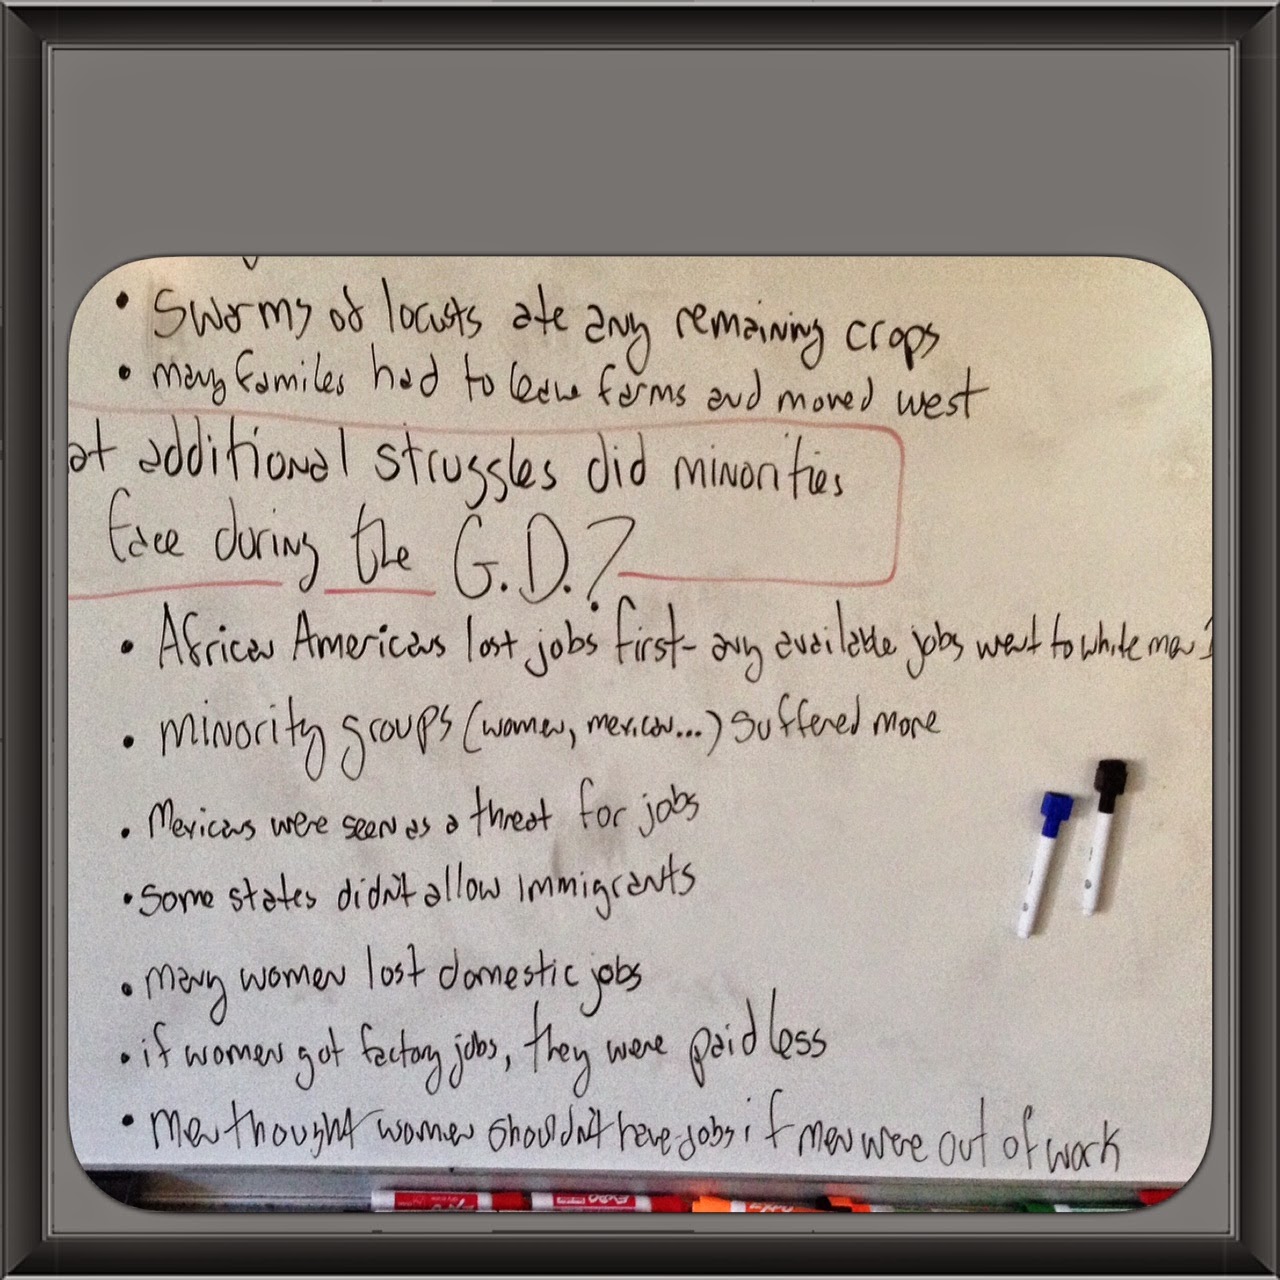 • Swarms of locusts ate any remaining crops
• many familes had to leave farms and moved west
at additional struggles did minorities
face during the G.D.?
• African Americans lost jobs first- any available jobs went to white men
• minority groups (women, mexican...) suffered more
• Mexicans were seen as a threat for jobs
• some states didn't allow immigrants
• many women lost domestic jobs
• if women got factory jobs, they were paid less
• Men thought women shouldn't have jobs if men were out of work
EXPO